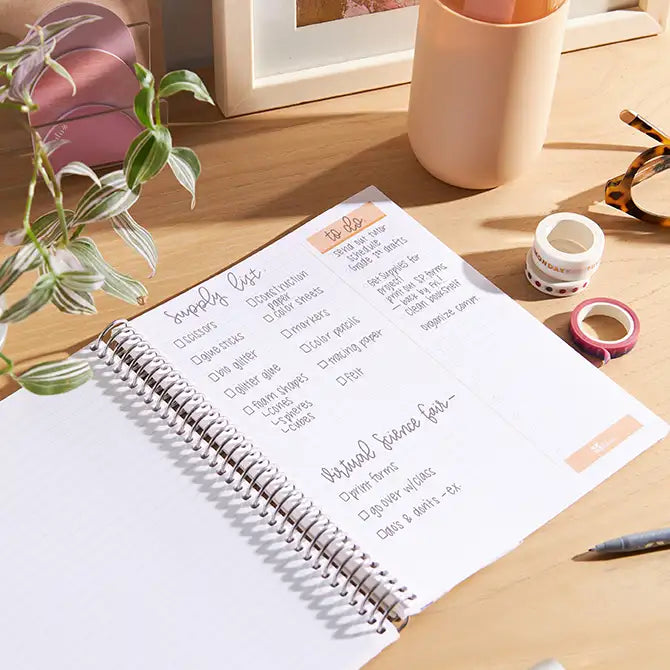 Supply list
□ scissors
□ glue sticks
□ bio glitter
□ glitter glue
□ foam shapes
↳ cones
↳ spheres
↳ cubes
□ construction
paper
□ color sheets
□ markers
□ color pencils
□ tracing paper
□ felt
Virtual Science fair –
□ print forms
□ go over w/class
□ do's & don'ts - ex
to do
send out tutor
schedule
Grade 1st drafts
Get Supplies for
project!
print out SP forms
– back by Fri.!
clean bookshelf
organize corner
MONDAY